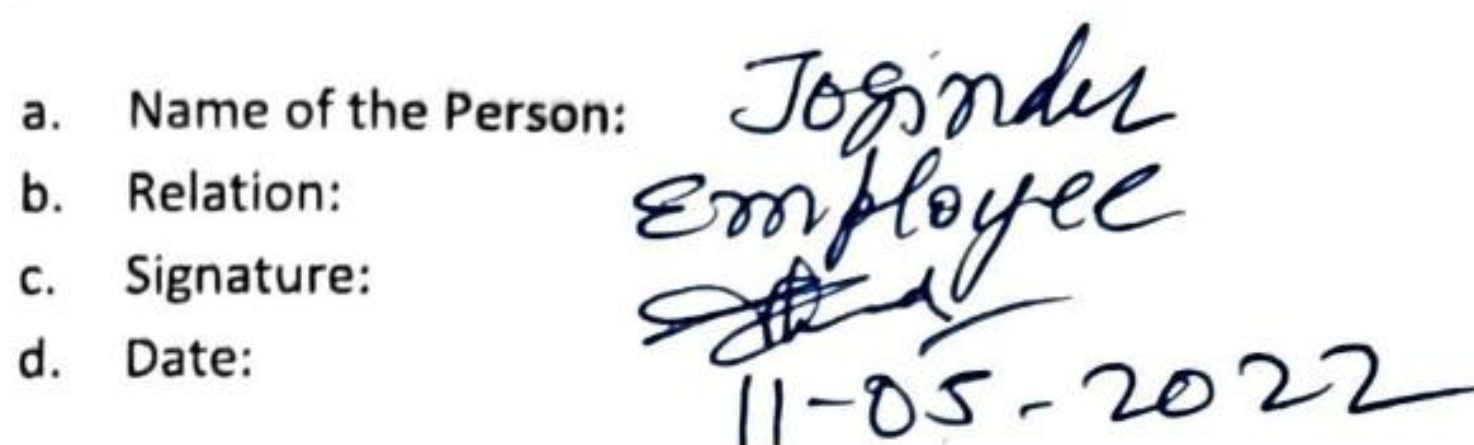 a. Name of the Person: Joginder
b. Relation: Employee
c. Signature:
d. Date: 11-05-2022